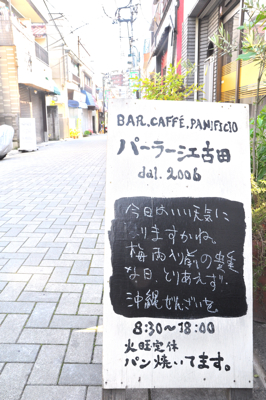 BAR.CAFFÉ.PANIFICIO
パーラー江古田
dal. 2006
今日はいい天気に
なりますかね。
梅雨入り前の貴重
な日、とりあえず、
沖縄ぜんざいを
8:30〜18:00
火曜定休
パン焼いてます。